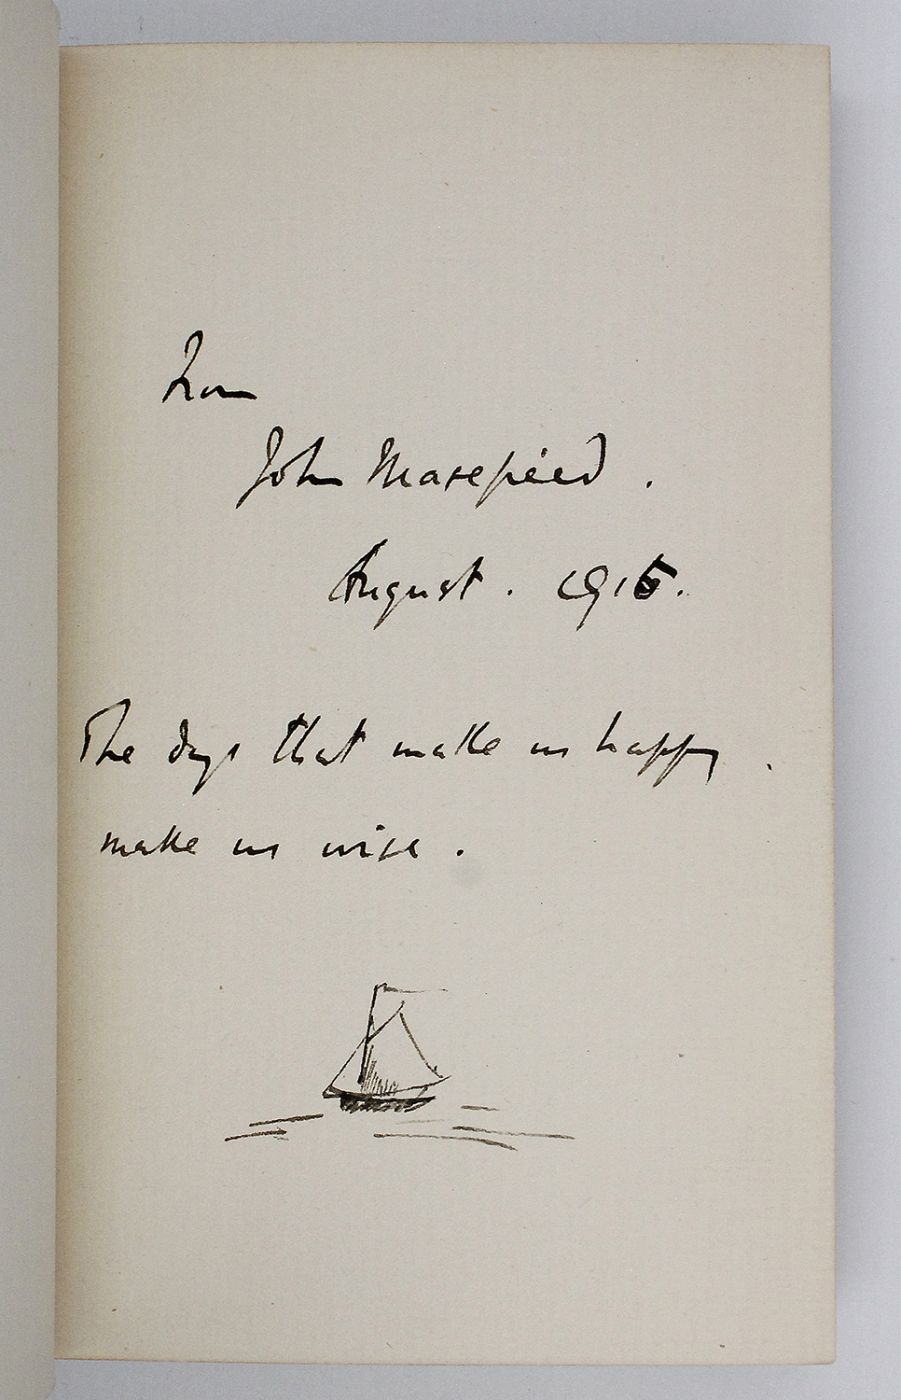 From
John Masefield.
August. 1915.
The days that make us happy.
make us wise.